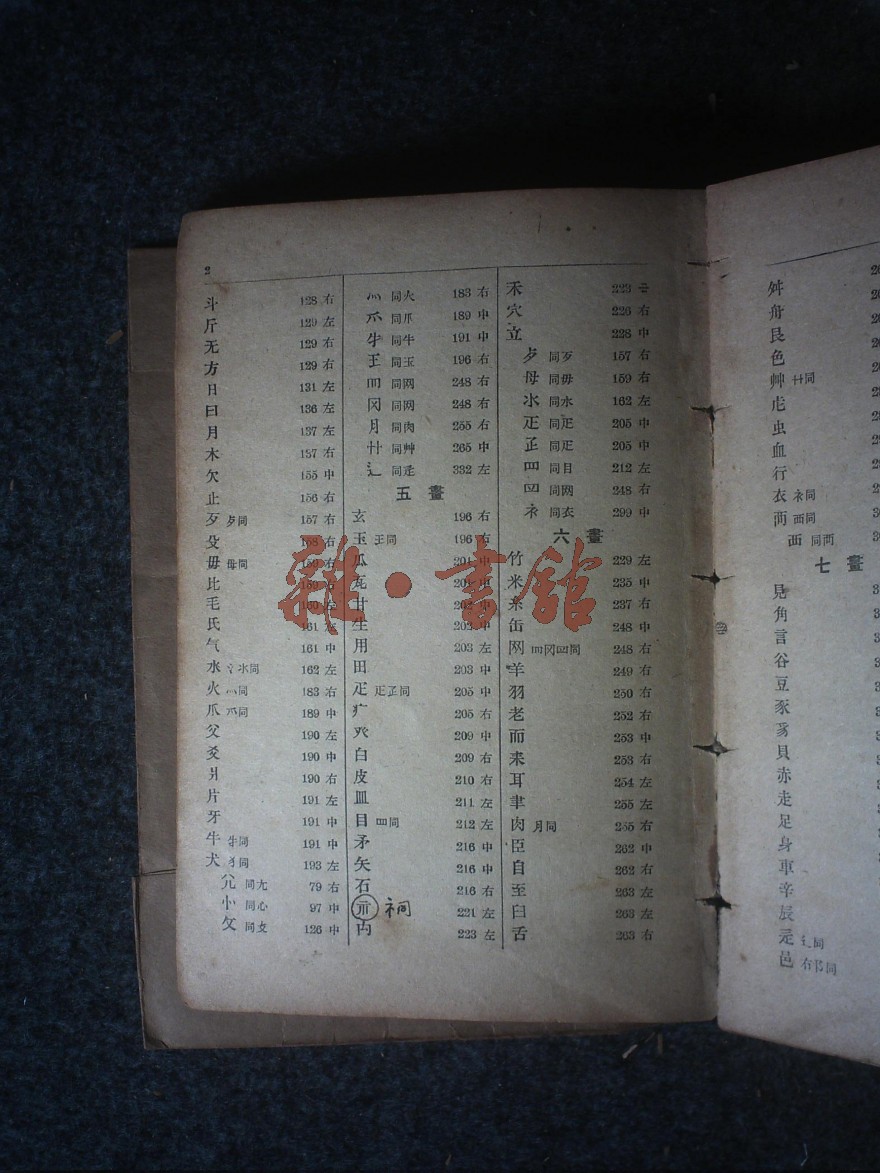 2
斗 128 右
斤 129 左
无 129 右
方 129 右
日 131 左
曰 136 左
月 137 左
木 137 右
欠 155 中
止 156 右
歹 歺同 157 右
殳 158 右
毋 母同 159 右
比 159 右
毛 159 左
氏 161 左
气 161 中
水 氵氺同 162 左
火 灬同 183 右
爪 爫同 189 中
父 190 左
爻 190 中
爿 190 右
片 191 左
牙 191 中
牛 牜同 191 中
犬 犭同 193 左
尣 同尢 79 右
㣺 同心 97 中
攵 同攴 126 中
灬 同火 183 右
爫 同爪 189 中
牜 同牛 191 中
王 同玉 196 右
罒 同网 248 右
冈 同网 248 右
月 同肉 255 右
艹 同艸 265 中
辶 同辵 332 左
五 畫
玄 196 右
玉 王同 196 右
瓜 201 中
瓦 201 中
甘 202 中
生 202 中
用 203 左
田 203 中
疋 205 中
疒 205 右
癶 209 中
白 209 右
皮 210 右
皿 211 左
目 罒同 212 左
矛 216 中
矢 216 中
石 216 右
示 礻同 221 左
禸 223 左
禾 223
穴 226 右
立 228 中
歺 同歹 157 右
母 同毋 159 右
氺 同水 162 左
疋 同疋 205 中
𤴔 同疋 205 中
罒 同目 212 左
罒 同网 248 右
衤 同衣 299 中
六 畫
竹 229 左
米 235 中
糸 237 右
缶 248 中
网 罒冈罒同 248 右
羊 249 右
羽 250 右
老 252 右
而 253 中
耒 253 右
耳 254 左
聿 255 左
肉 月同 255 右
臣 262 中
自 262 右
至 263 左
臼 263 左
舌 263 右
舛
舟
艮
色
艸 艹同
虍
虫
血
行
衣 衤同
襾 西同
西 同襾
七 畫
見
角
言
谷
豆
豕
豸
貝
赤
走
足
身
車
辛
辰
辵 辶同
邑 右阝同
雜·書館